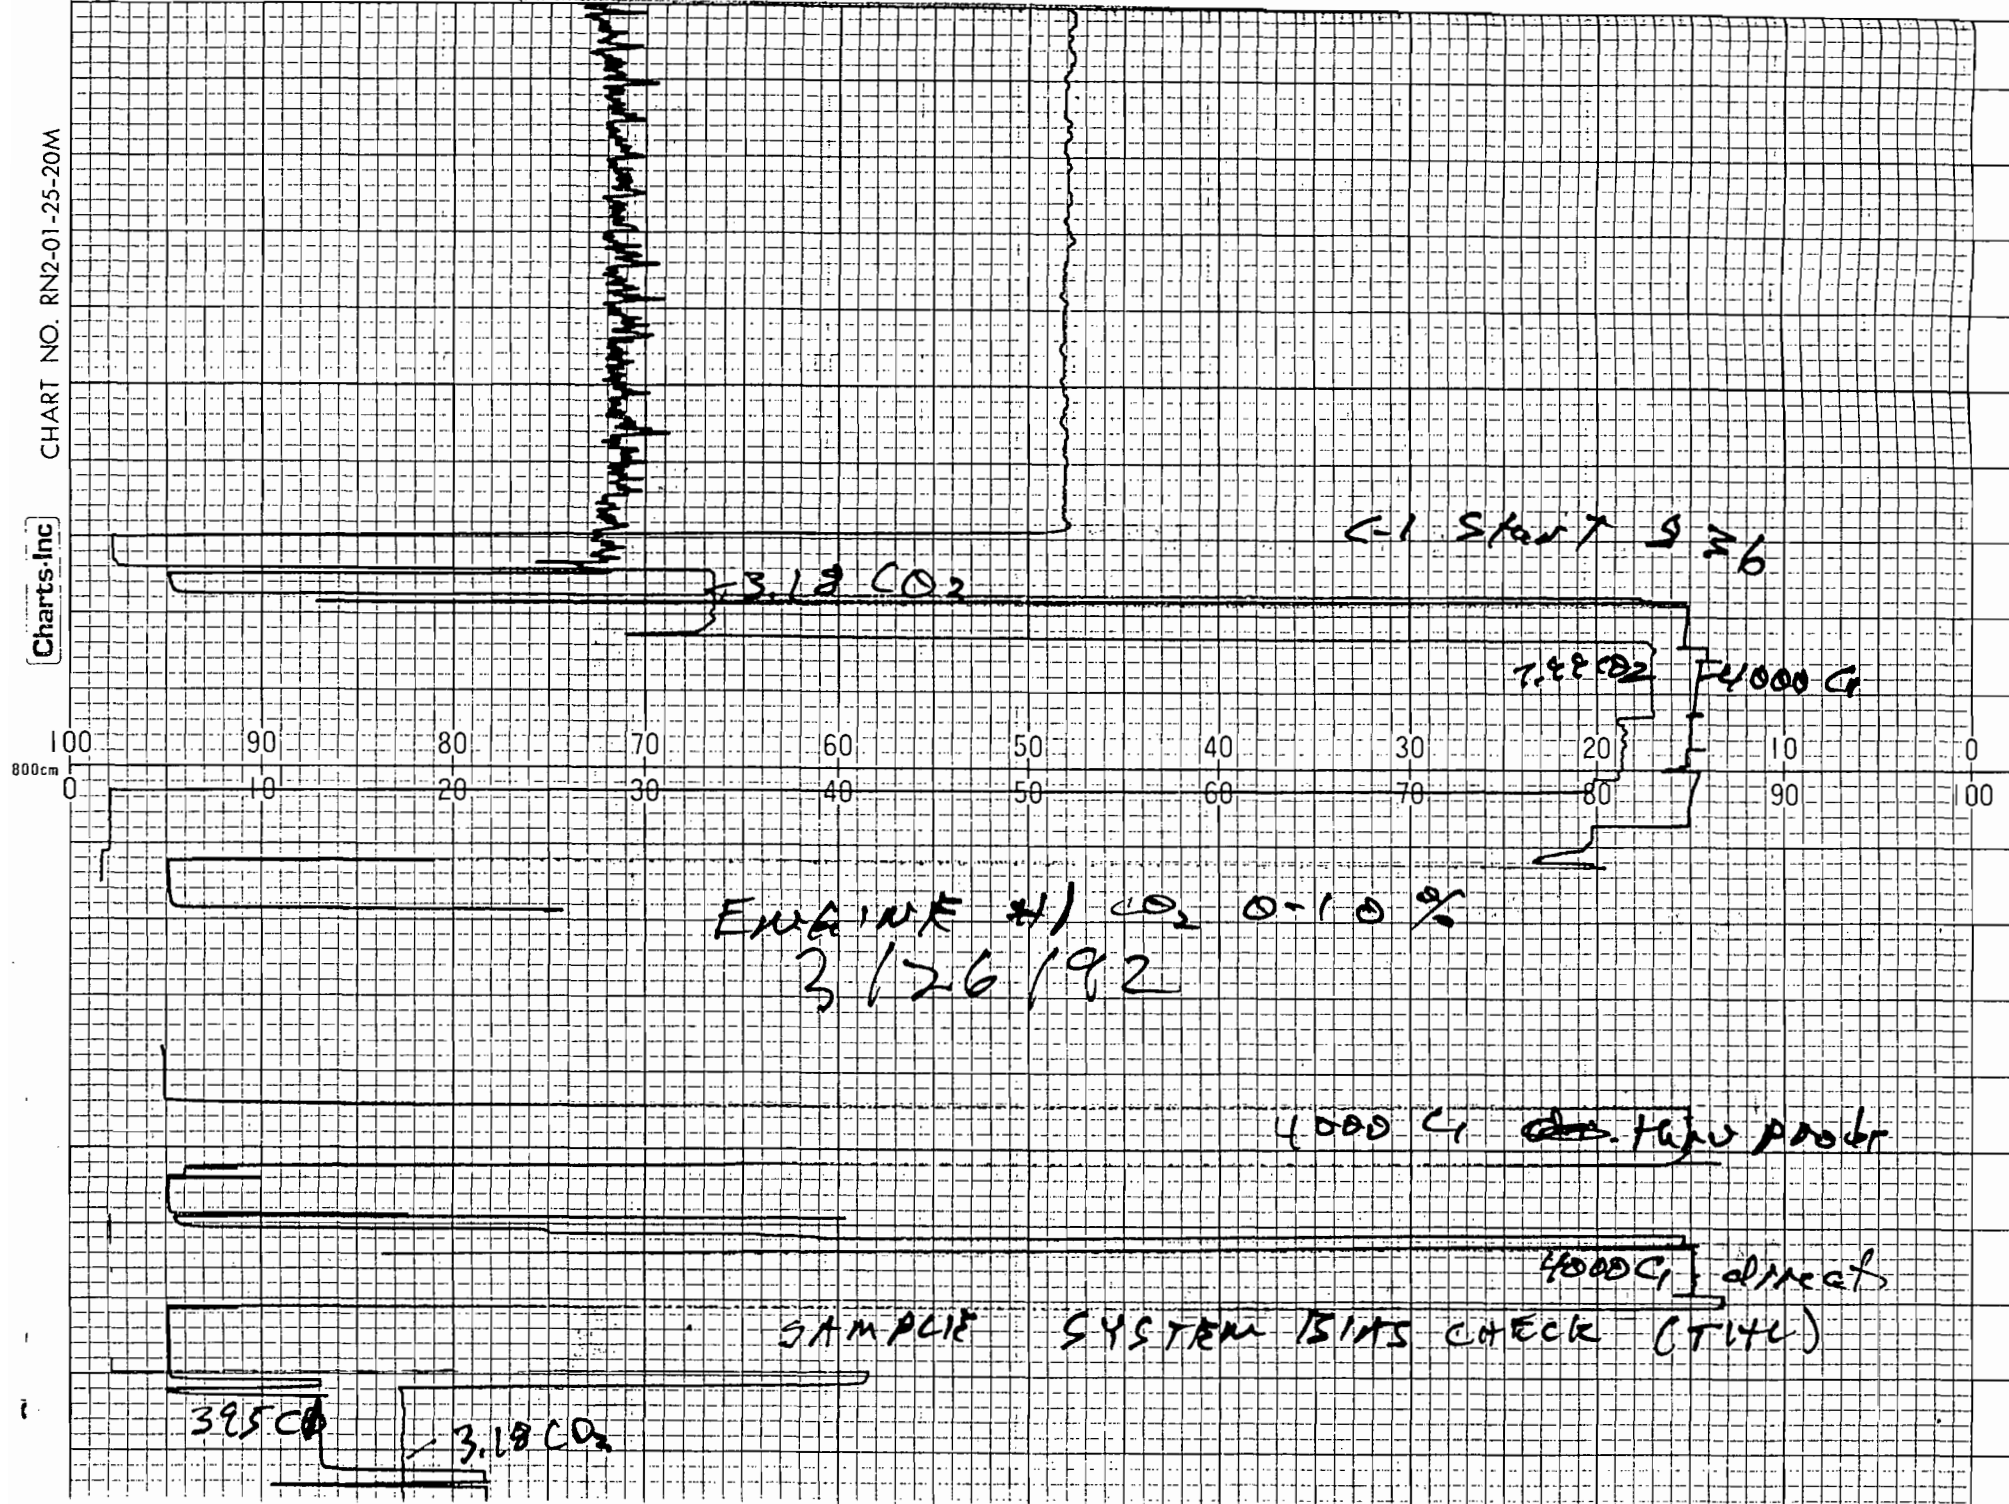 CHART NO. RN2-01-25-20M
Charts, Inc
C-1 Start
3.18 CO2
4000 C1
100 90 80 70 60 50 40 30 20 10 0
800cm
0 10 20 30 40 50 60 70 80 90 100
ENGINE #1 CO2 0-10 %
3/26/92
4000 C1 thru probe
4000 C1 direct
SAMPLE SYSTEM BIAS CHECK (THC)
395 CO
3.18 CO2